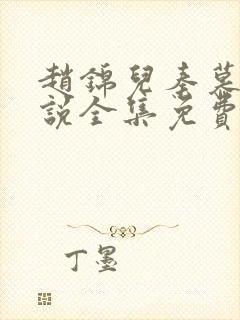 趙錦兒秦慕
說全集免費
丁墨